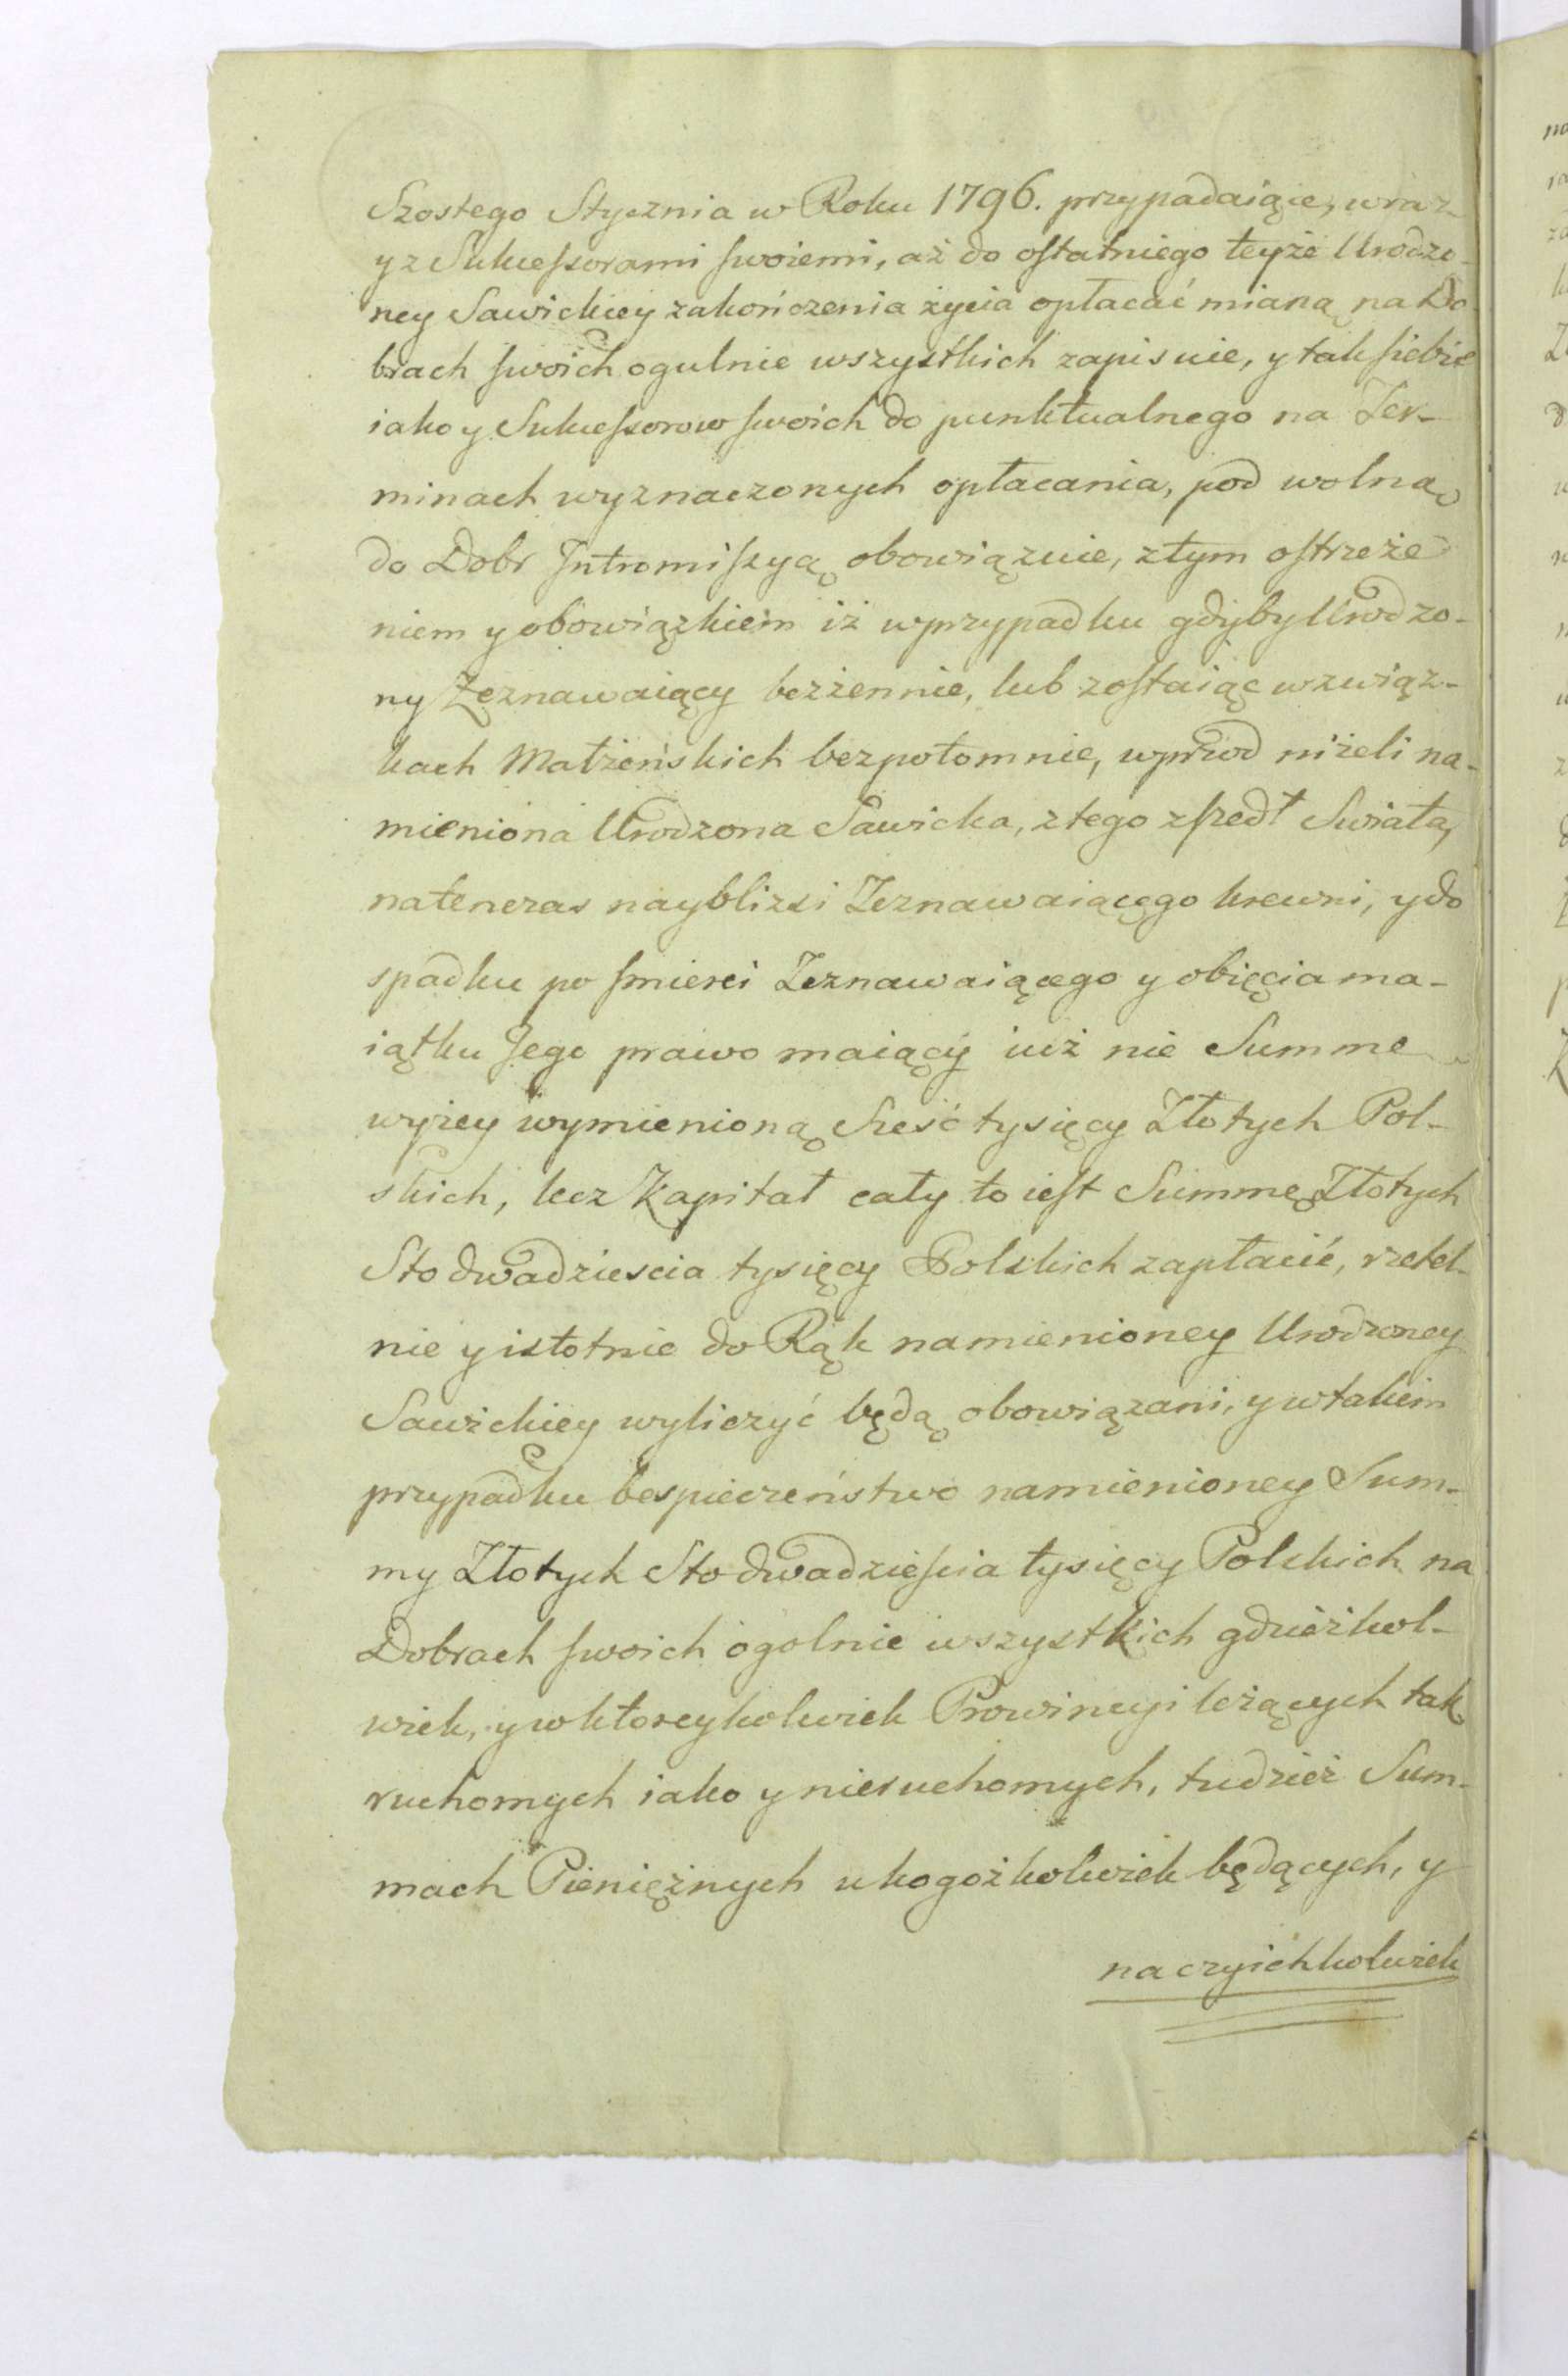 Szostego Stycznia w Roku 1796. przypadaiące, wraz
y z Sukceſsorami ſwoiemi, aż do oſtatniego teyże Urodzo-
ney Sawickiey zakończenia życia opłacać mianą na Do
brach ſwoich ogulnie wszystkich zapisuie, y tak ſiebie
iako y Sukceſsorow ſwoich do punktualnego na Ter-
minach wyznaczonych opłacania, pod wolną
do Dobr Intromiſsyą obowiązuie, z tym oſtrzeże
niem y obowiązkiem iż w przypadku gdyby Urodzo-
ny Zeznawaiący bezżennie, lub zoſtaiąc w związ-
kach Małżeńskich bezpotomnie, wprzod niżeli na-
mieniona Urodzona Sawicka, z tego zſzedł Swiata,
natenczas nayblizsi Zeznawaiącego krewni, y do
spadku po ſmierci Zeznawaiącego y obięcia ma-
iątku Jego prawo maiący iuż nie Summe
wyżey wymienioną Sześć tysięcy Złotych Pol-
skich, lecz Kapitał cały to ieſt Summę Złotych
Sto dwadziescia tysięcy Polskich zapłacić, rzetel-
nie y istotnie do Rąk namienioney Urodzoney
Sawickiey wyliczyć będą obowiązani, y w takim
przypadku bespieczeństwo namienioney Sum-
my Złotych Sto dwadzieſcia tysięcy Polskich na
Dobrach ſwoich ogolnie wszystkich gdzieżkol-
wiek, y w ktoreykolwiek Prowincyi leżących tak
ruchomych iako y nieruchomych, tudzież Sum-
mach Pieniężnych u kogożkolwiek będących, y
na czyichkolwiek